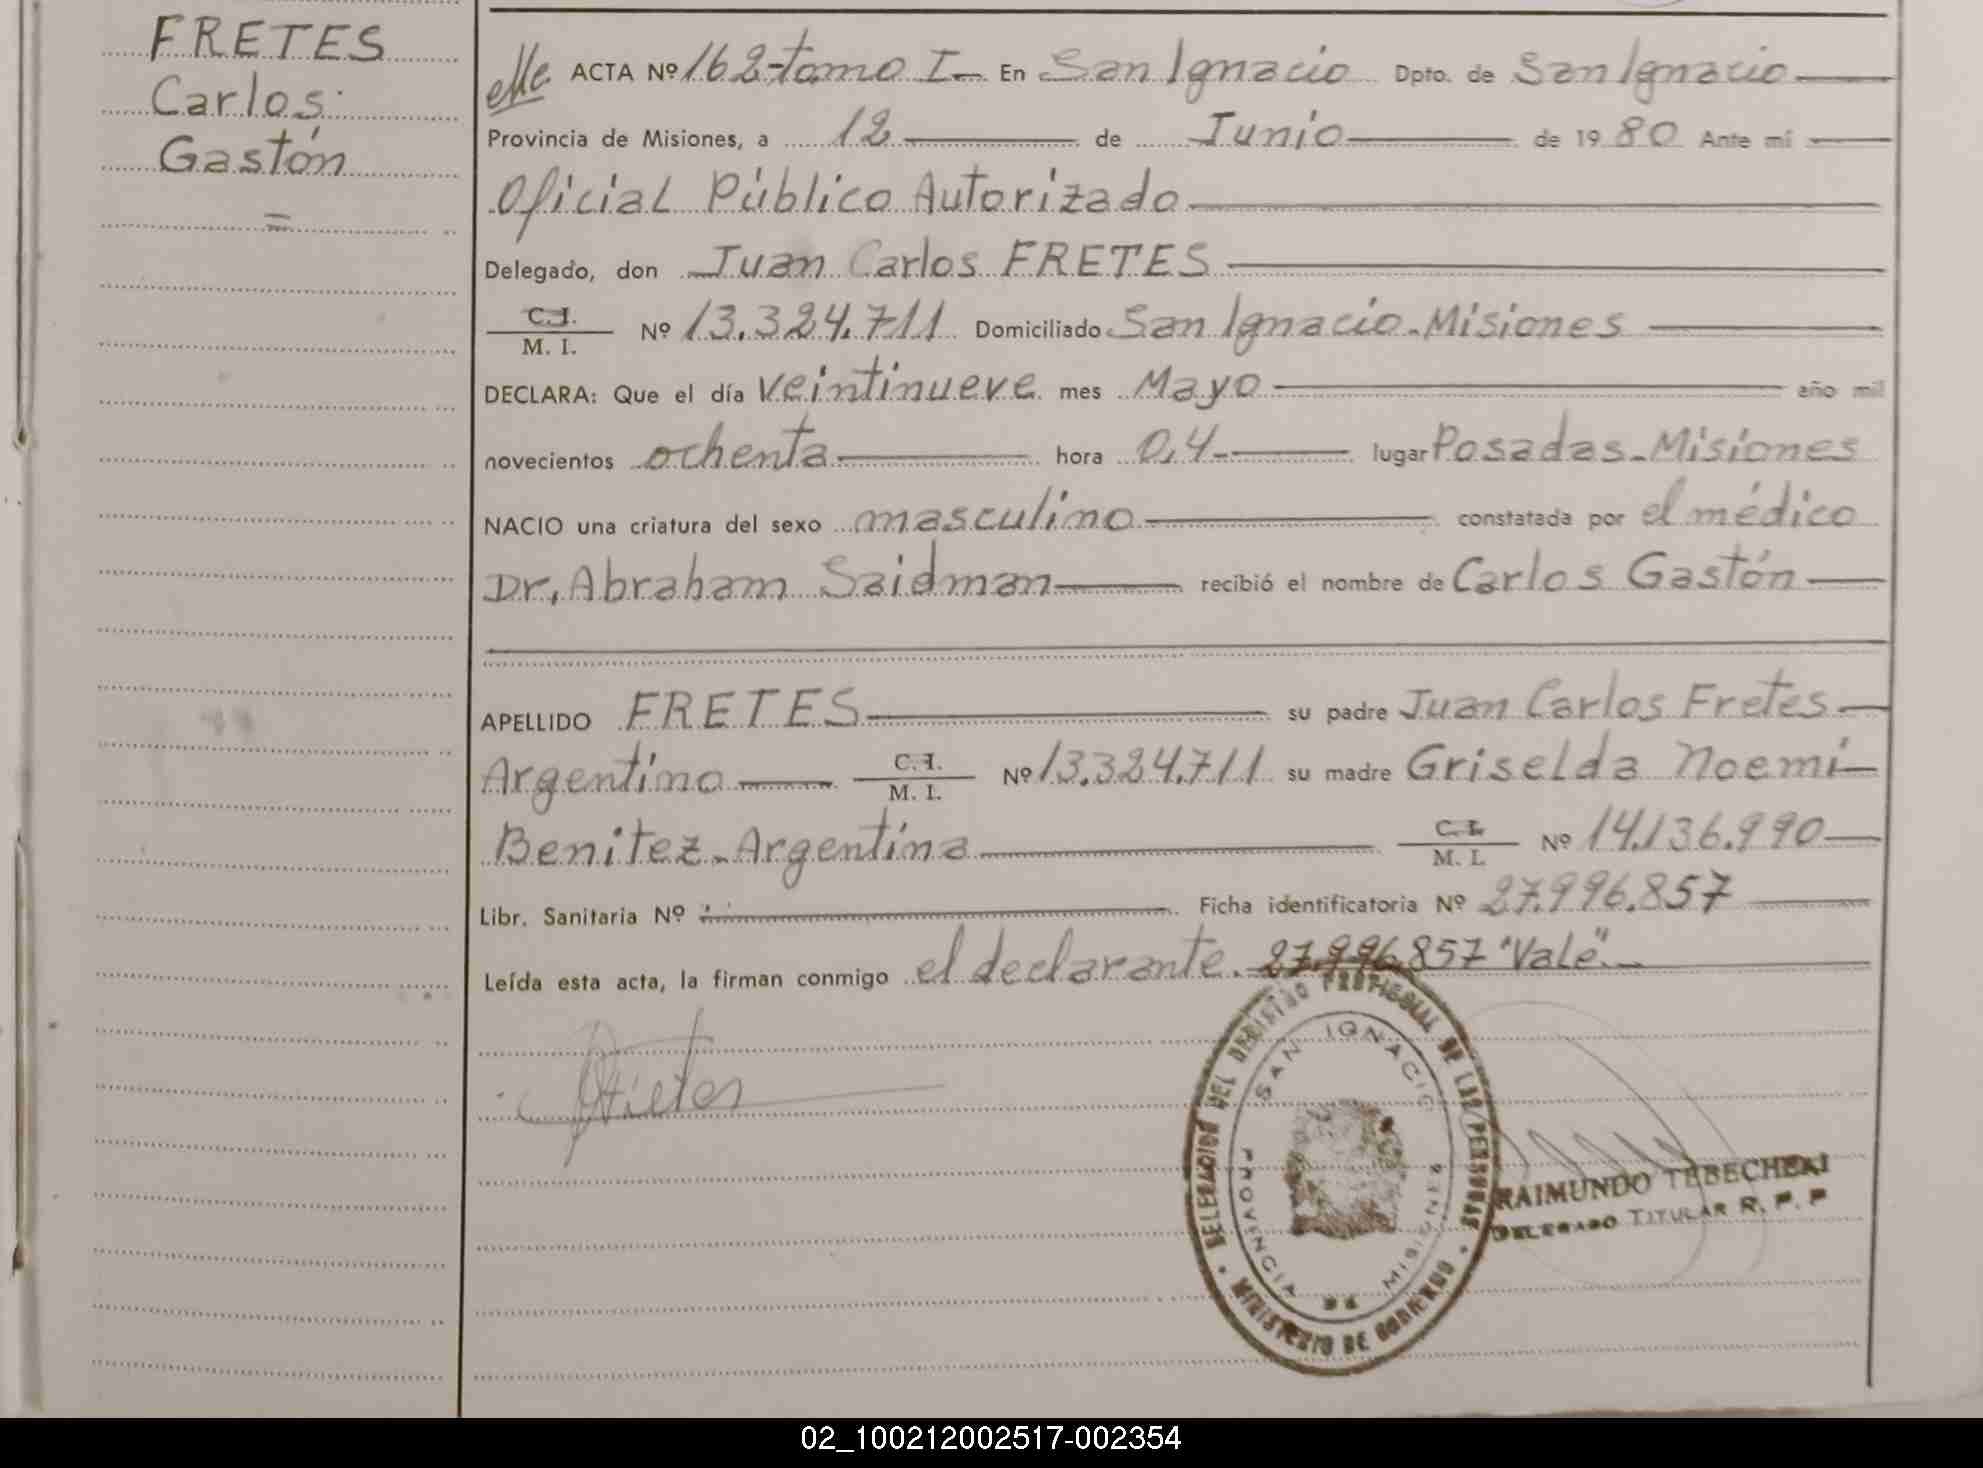 FRETES
Carlos
Gastón
ACTA Nº 162-tomo I- En San Ignacio Dpto. de San Ignacio
Provincia de Misiones, a 12 de Junio de 1980 Ante mí
Oficial Público Autorizado
Delegado, don Juan Carlos FRETES
C.I.
M. I. Nº 13.324.711 Domiciliado San Ignacio-Misiones
DECLARA: Que el día veintinueve mes Mayo año mil
novecientos ochenta hora 0,4- lugar Posadas-Misiones
NACIO una criatura del sexo masculino constatada por el médico
Dr, Abraham Saidman recibió el nombre de Carlos Gastón
APELLIDO FRETES su padre Juan Carlos Fretes
Argentino C.I. M. I. Nº 13.324.711 su madre Griselda Noemí
Benitez-Argentina C.I. M. I. Nº 14.136.990
Libr. Sanitaria Nº Ficha identificatoria Nº 27.996.857
Leída esta acta, la firman conmigo el declarante. 27.996.857 "Vale".
DELEGACION DEL REGISTRO PROVINCIAL DE LAS PERSONAS
SAN IGNACIO
PROVINCIA MISIONES
MINISTERIO DE GOBIERNO
RAIMUNDO TEBECHERI
DELEGADO TITULAR R. P. P
02_100212002517-002354